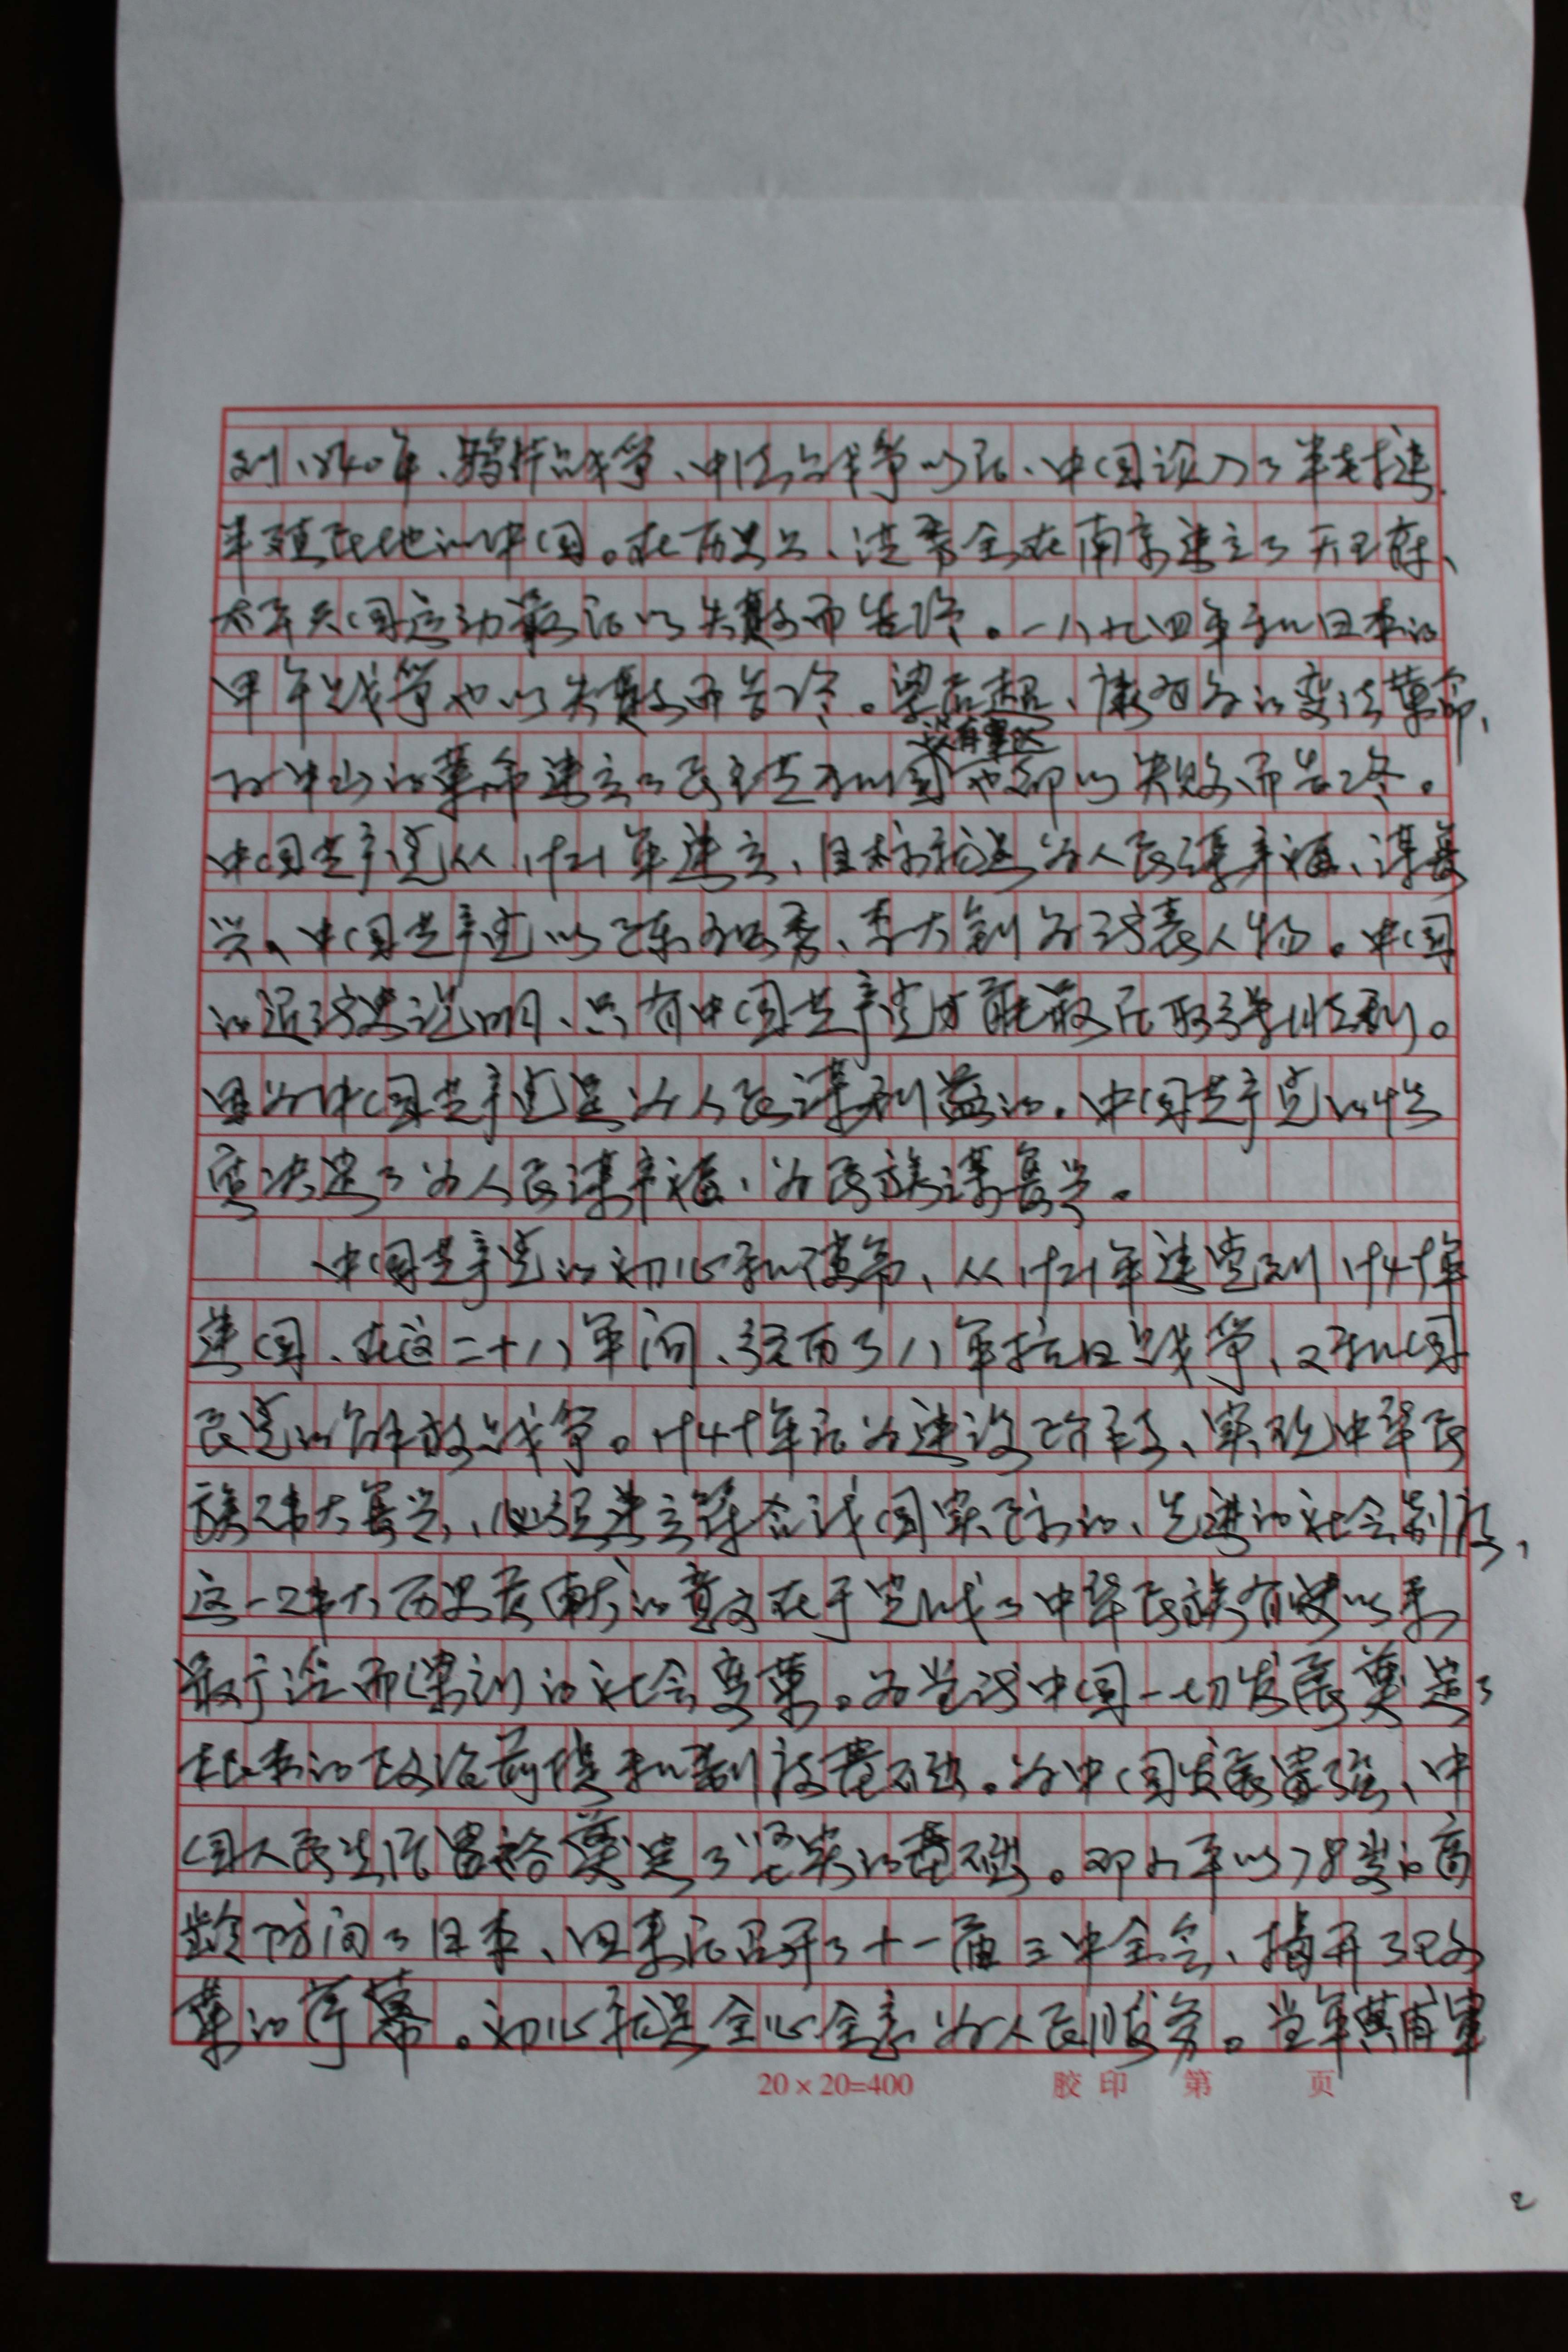 到1840年、鸦片战争、中法战争以后、中国沦入了半封建
半殖民地的中国。在历史上、洪秀全在南京建立了天王府、
太平天国运动最后以失败而告终。一八九四年和日本的
甲午战争也以失败而告终。梁启超、康有为的变法革命、
没有军队
孙中山的革命建立了民主共和国也却以失败而告终。
中国共产党从1921年建立、目标就是为人民谋幸福、谋复
兴、中国共产党以陈独秀、李大钊为代表人物。中国
的近代史说明、只有中国共产党才能最后取得胜利。
因为中国共产党是为人民谋利益的。中国共产党的性
质决定了为人民谋幸福、为民族谋复兴。
中国共产党的初心和使命、从1921年建党到1949年
建国、在这二十八年间、经历了八年抗日战争、又和国
民党的解放战争。1949年后为建设阶段、实现中华民
族伟大复兴、必须建立符合我国实际的、先进的社会制度、
这一伟大历史贡献的意义在于完成了中华民族有史以来
最广泛而深刻的社会变革。为当代中国一切发展奠定了
根本的政治前提和制度基础。为中国发展富强、中
国人民生活富裕奠定了坚实的基础。邓小平以78岁的高
龄访问了日本、回来后召开了十一届三中全会、揭开了改
革的序幕。初心就是全心全意为人民服务。当年黄甫军
20×20=400 胶印 第 页
2